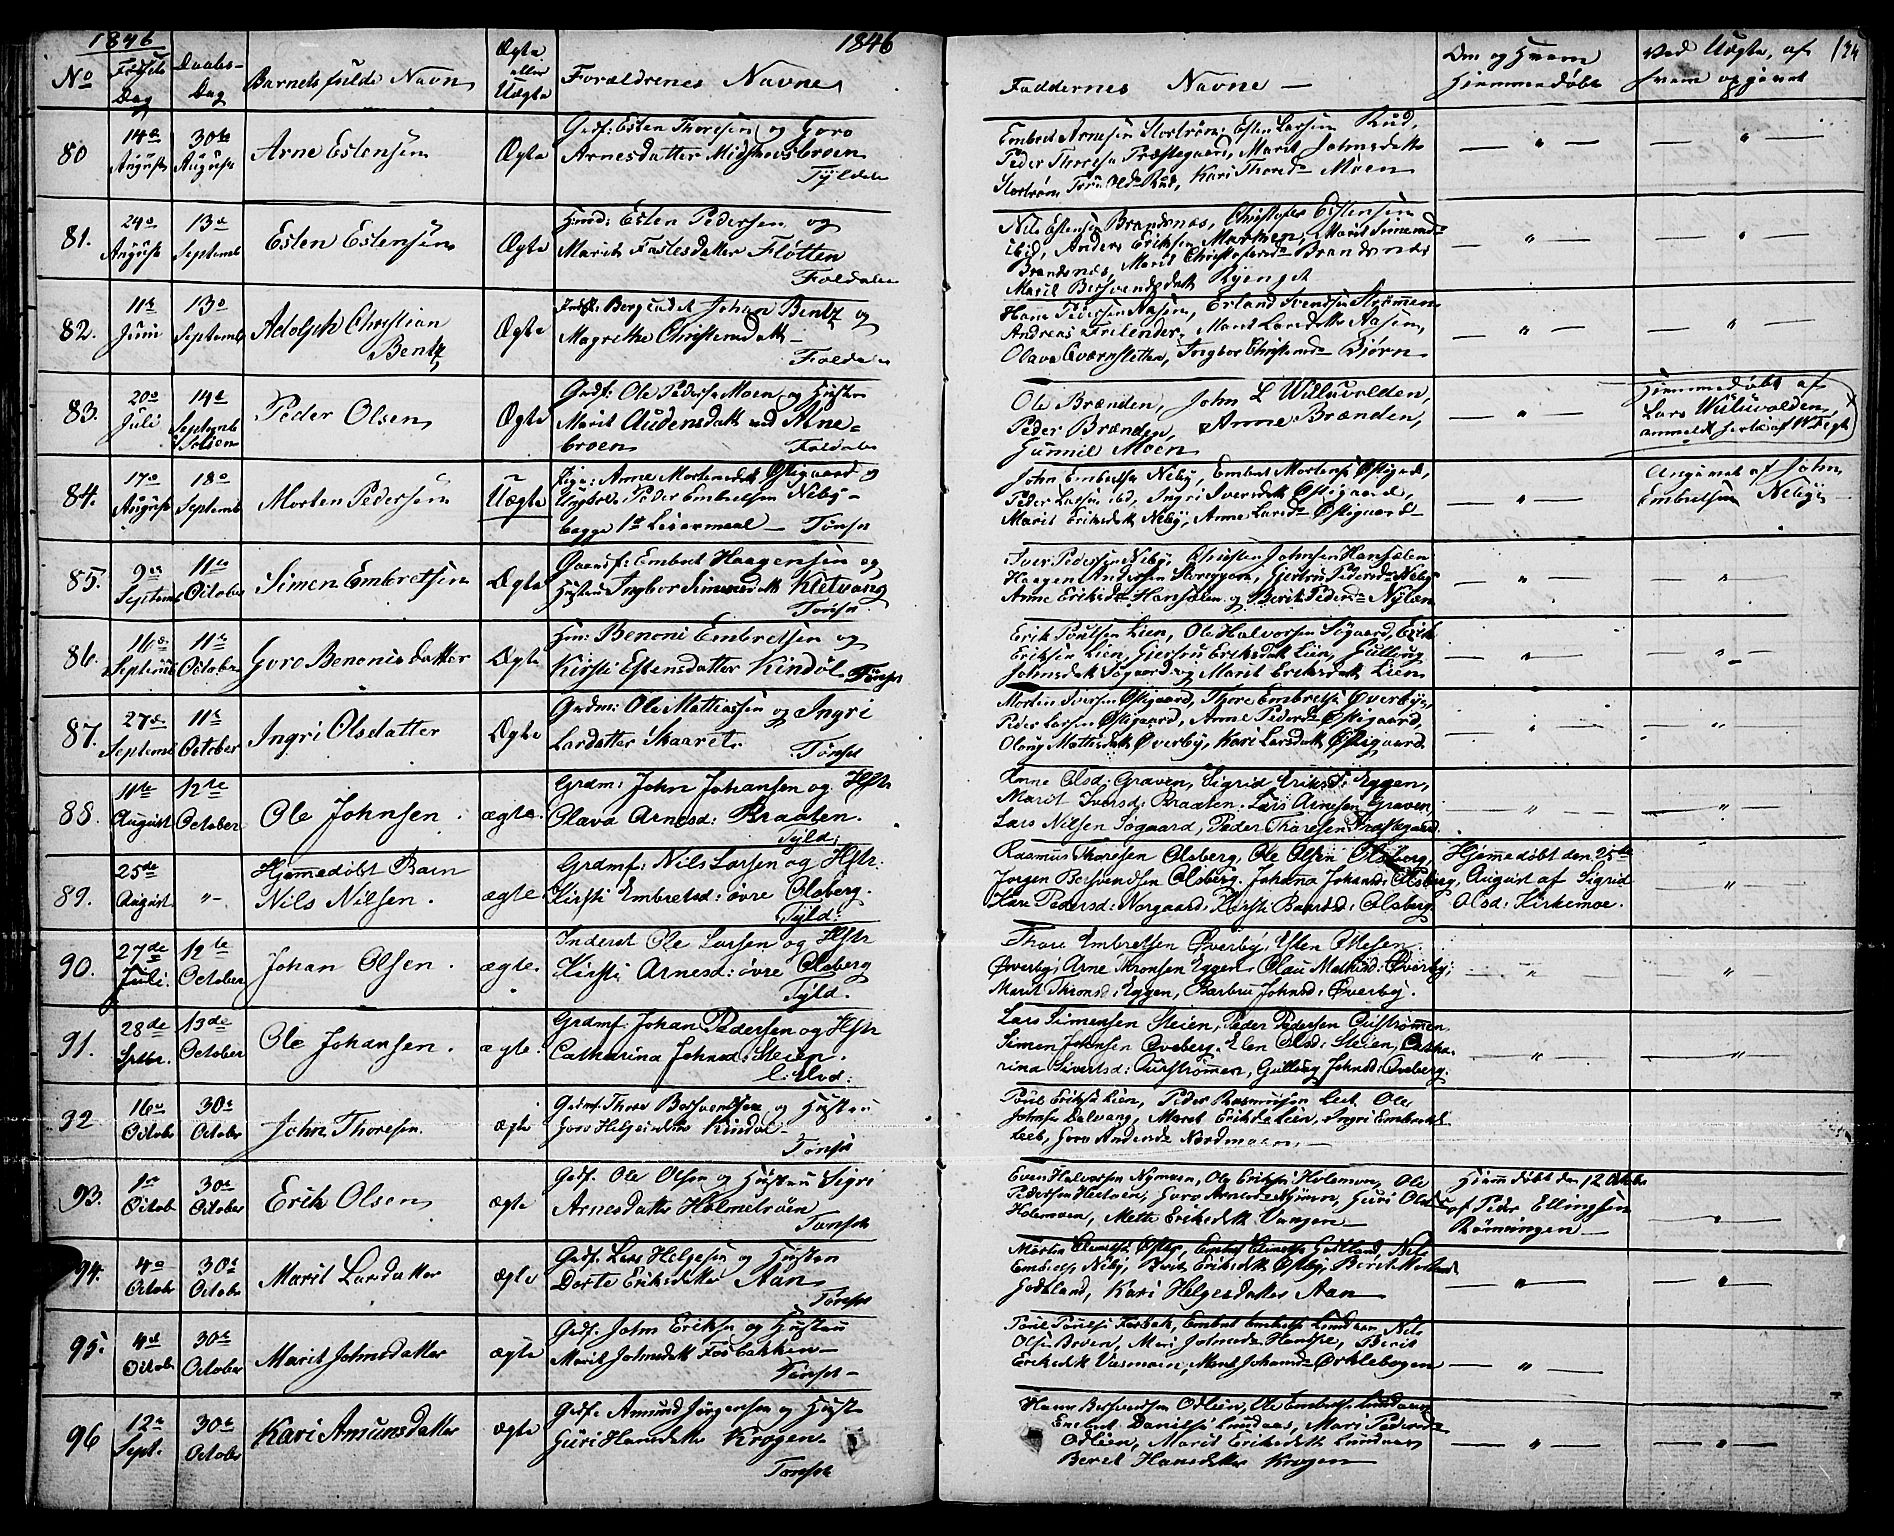 1846
No
Fødsels Dag
Daabs-Dag
Barnets fulde Navn
Ægte eller Uægte
Forældrenes Navne
1846
Faddernes Navne
Om og Hvem Hjemmedøbt
Ved Uægte, af hvem opgivet
134
80
14de August
30te August
Arne Estensen
Ægte
Gadf: Esten Thoresen og Goro
Arnesdatter Midskovsbroen
Tyldal
Embret Arnesen Storstrøm, Esten Larsen Rud,
Peder Thoresen Præstegaard, Marit Johnsdatt
Storstrøm, Olsd Rud, Kari Thoresd Moen
81.
24de August
13de Septemb
Esten Estensen
Ægte
Huusd: Esten Pedersen og
Marit Faslesdatter Flotten
Foldalen
Nils Estensen Brandsnæs, Christofer Estensen
ibid, Anders Eriksen, Marit Simensd
Brandsnæs, Marit Christofersd Brandsnæs
Marit Bersvendsdatt Ryeng
82.
11te Juni
13de Septemb
Adolph Christian Bentz
Ægte
Johan Bentz og
Magrethe Christensdatt
Foldalen
Hans Pedersen Aasen, Erland Svendsen Strømmen
Andreas Frelender, Marit Larsdatter Aasen,
Olava Qværnsletten, Ingbor Christensd Bjørn
83.
20de Juli
14de Septemb
Peder Olsen
Ægte
Gadf: Ole Pedersen Moen og Hustru
Marit Audensdatt ved Alne-
broen
Foldalen
Ole Brænden, John L Willuvolden,
Peder Brænden, Anne Brænden,
Gunnil Moen
Hjemmedøbt af
Lars Willuvolden,
84.
17de August
18de Septemb
Morten Pedersen
Uægte
Pige: Anne Mortensdatt Østigaard og
Ungkarl: Peder Embretsen Neby-
begge 1ste Leiermaal - Tønset
John Embretsen Neby, Embret Mortens Østigrd,
Peder Larsen ibd, Ingri Iversdatt Østigaard,
Marit Eriksdatt Neby, Anne Larsd Østigaard
Angivet af John
Embretsen Neby
85.
9de Septemb
11te October
Simen Embretsen
Ægte
Gaardf: Embret Haagensen og
Hustru Ingbor Simensdatt Kletvang
Tønset
Iver Pedersen Neby, Christen Johnsen Hansælen
Haagen Andersen Storeggen, Gjertru Pedersd Neby
Anne Eriksd Hansælen og Berit Pedersd Nylæn
86.
16de Septemb
11te October
Goro Benonisdatter
Ægte
Hm: Benoni Embretsen og
Kirsti Estensdatter Kindøl
Tønset
Erik Poulsen Lien, Ole Halvorsen Søgaard, Erik
Eriksen Lien, Gjertru Eriksdatt Lien, Gullaug
Johnsdatt Søgaard og Marit Eriksdatt Lien
87.
27de Septemb
11te October
Ingri Olsdatter
Ægte
Grdm: Ole Mathiassen og Ingri
Larsdatter Skaaret
Tønset
Morten Iversen Østigaard, Thore Embrets Øverby,
Peder Larsen Østigaard, Anne Pedersd Østigaard,
Oloug Mathisdatt Øverby, Kari Larsdatt Østigaard
88.
11te August
12te October
Ole Johnsen.
ægte.
Grdm: John Johansen og Hstr
Olava Arnesd: Braaten.
Tyld:
Anne Olsd: Graven, Sigrid Eriksd: Eggen,
Marit Iversd: Braaten. Lars Arnesen Graven,
Lars Nilsen Søgaard, Peder Thoresen Præstegaard.
89.
25de August
"-
Hjemmedøbt Barn
Nils Nilsen.
ægte.
Grdmf: Nils Larsen og Hstr.
Kirsti Embretsd: øvre Olsberg.
Tyld:
Rasmus Thoresen Olsberg, Ole Olsen Olsberg,
Jørgen Bersvendsen Olsberg. Johana Johansd: Olsberg,
Kari Pedersd: Norgaard, Kirsti Baardsd: Olsberg.
Hjemmedøbt den 25de
August af Sigrid
Olsd: Kirkemoe.
90.
27de Juli.
12te October
Johan Olsen.
ægte.
Inderst Ole Larsen og Hstr
Kirsti Arnesd: øvre Olsberg
Tyld.
Thore Embretsen Øverby, Esten Ottesen
Øverby, Arne Thronsen Eggen, Olau Mathisd: Øverby;
Marit Thronsd: Eggen, Barbru Johnsd: Øverby.
91.
28de Septbr.
13de October
Ole Johansen.
ægte.
Grdmf. Johan Pedersen og Hstr
Catharina Johnsd: Steien.
l: Elvd:
Lars Simensen Steien, Peder Pedersen Austrømmen
Simen Johnsen Øveberg. Elen Olsd: Steien, Catha-
rina Sivertsd: Aurstrømmen, Gulloug Johnsd: Øveberg.
92
16de Octobr
30te October
John Thoresen.
ægte
Gadmf. Thore Bersvendsen og Hustru
Goro Helgesdatter Kindøl
Tønset
Poul Eriksen Lien, Peder Rasmussen Leet, Ole
Johnsen Dalvang, Maret Eriksd Lien, Ingri Embretsd
Leet, Goro Andersd Nordmoen.
93.
1de Octob
30te October
Erik Olsen
ægte
Gadf. Ole Olsen og Hustru Sigri
Arnesdatter Holmelmoen
Tønset
Even Halvorsen Nymoen, Ole Eriksen Holemoen, Ole
Pedersen, Goro Arnesd Nymoen, Guri Olsd
Holemoen, Mette Eriksdatt Vangen
Hjemmdøbt den 12 Octobr
af Peder Ellingsen
Rønningen
94.
4de Octobr
30te October
Marit Larsdatter
ægte
Gadf. Lars Helgesen og Hustru
Dorte Eriksdatter Aan
Tønset
Martin Østby, Embret Godtland, Nils
Embretsen Neby, Berit Eriksdatt Østby, Berit
Godtland, Kari Helgesdatter Aan
95.
4de Octobr
30te October
Marit Johnsdatter
ægte
Gadf. John Eriksen og Hustru
Marit Johnsdatt Fosbakken
Tønset
Poul Poulsen Fosbak, Embret Embretsen Lundaas, Nils
Olsen Broen, Mari Johnsd, Berit
Eriksdatt Vasmoen, Maret Johansd Orklebogen
96
12te Sept.
30te October
Kari Amunsdatter
ægte
Gadf. Amund Jørgensen og Hust
Guri Hansdatter Krogen
Tønset
Hans Bersvendsen Odlien, Ole Embretsen Lundaas
Embret Danielsen Lundaas, Mari Pedersd
Odlien, Marit Eriksdatt Lundaas
Berit Hansdatter Krogen